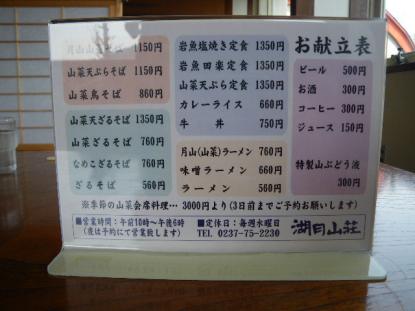 お献立表
ビール 500円
お酒 300円
コーヒー 300円
ジュース 150円
特製山ぶどう液
300円
岩魚塩焼き定食 1350円
岩魚田楽定食 1350円
山菜天ぷら定食 1350円
カレーライス 660円
牛丼 750円
月山(山菜)ラーメン 760円
味噌ラーメン 660円
ラーメン 560円
そば 1150円
山菜天ぷらそば 1150円
山菜鳥そば 860円
山菜天ざるそば 1350円
山菜ざるそば 760円
なめこざるそば 760円
ざるそば 560円
※季節の山菜会席料理… 3000円より(3日前までご予約お願いします)
■営業時間:午前10時〜午後6時
(夜は予約にて営業致します)
■定休日:毎週水曜日
TEL 0237-75-2230
湖月山荘